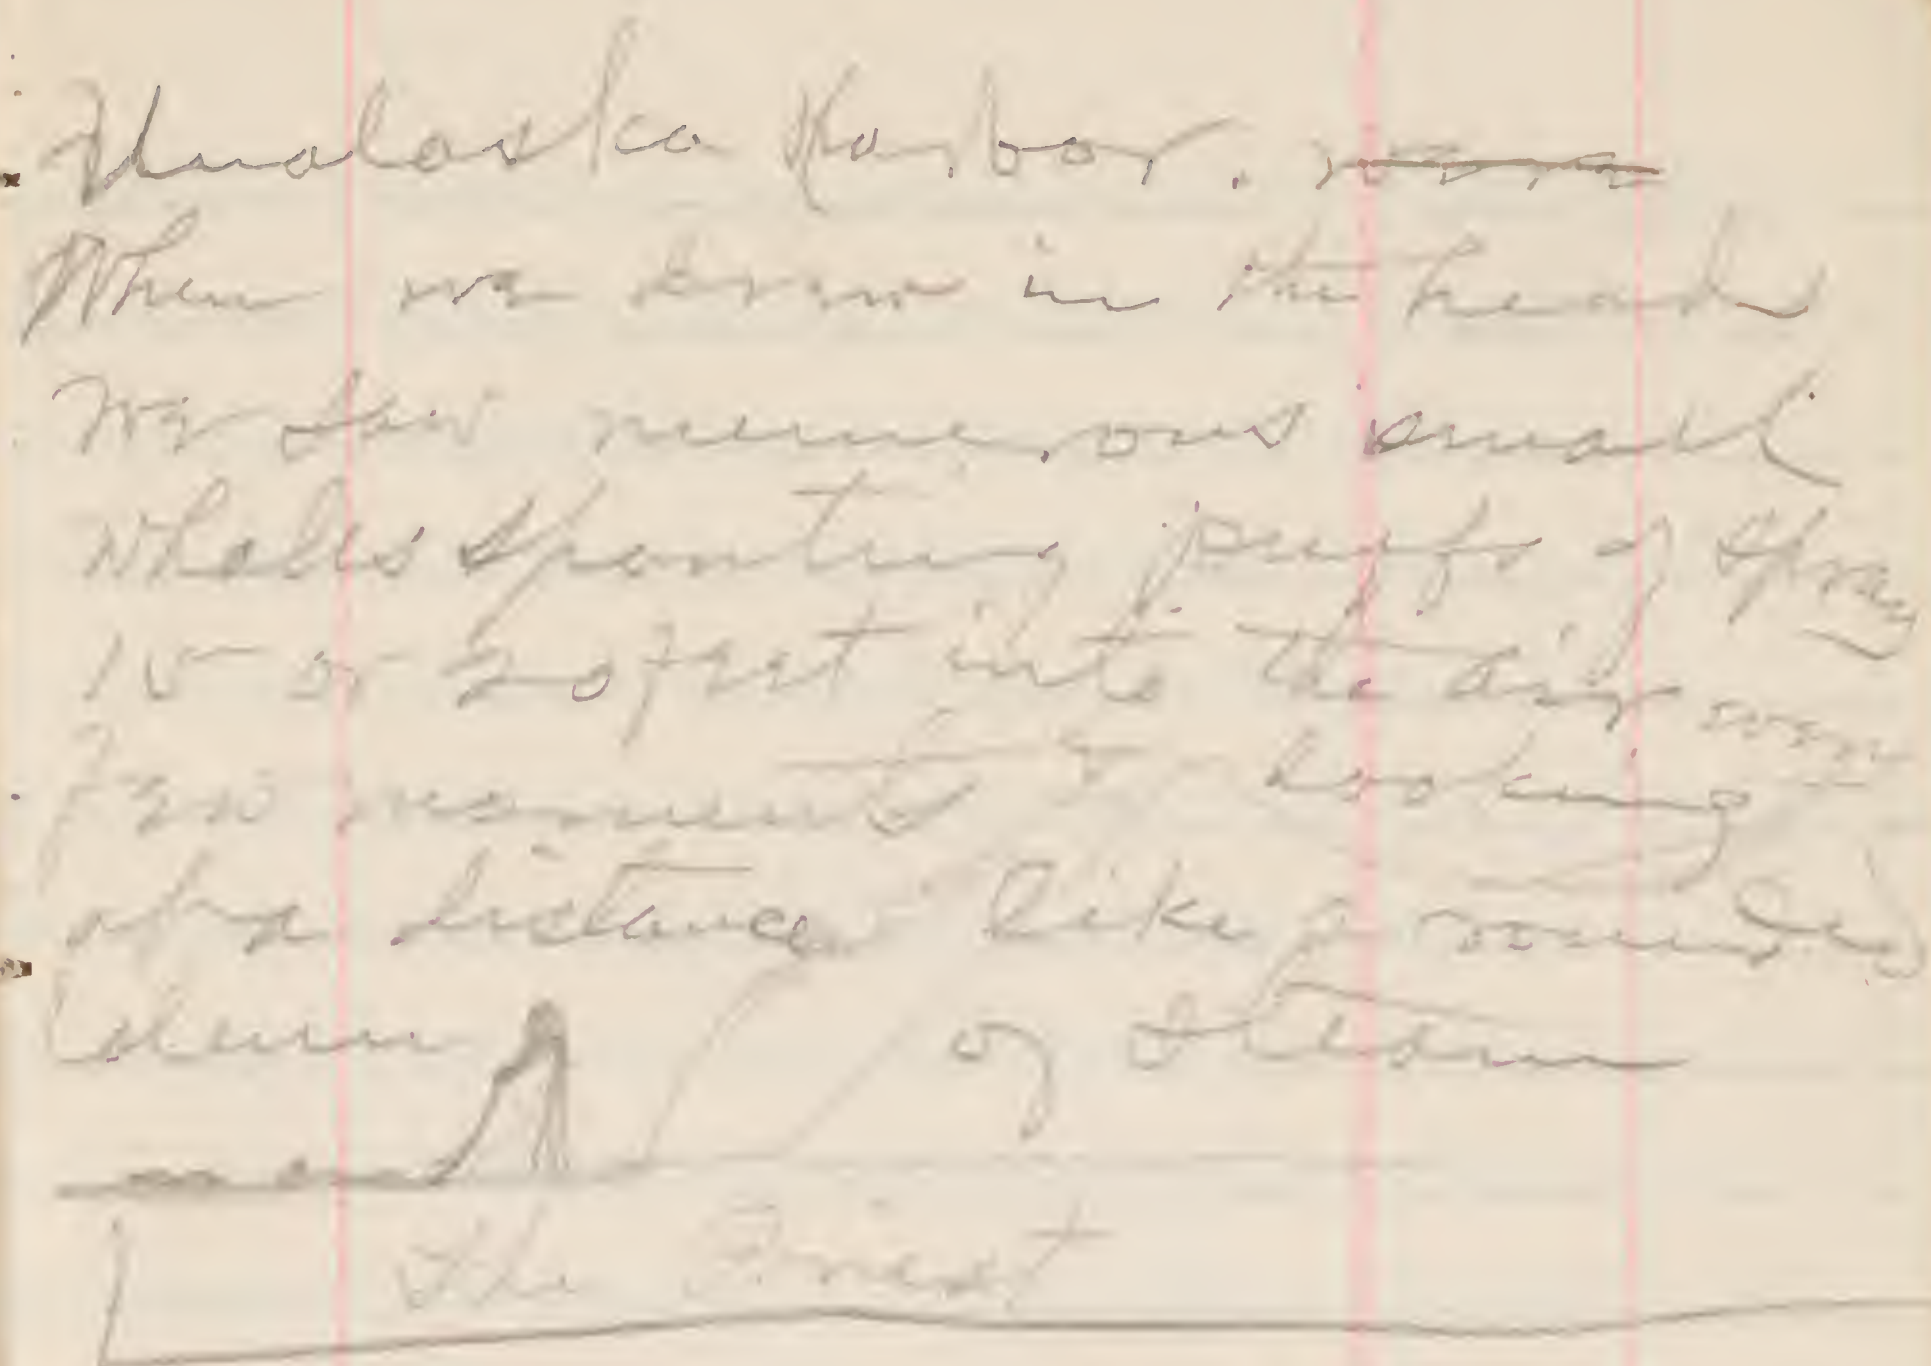 Unalaska Harbor.
When we drew in the head
we saw numerous small
whales spouting puffs of spray
15 or 20 feet into the air every
few moments & looking
at a distance like a rounded
column of steam
The Priest